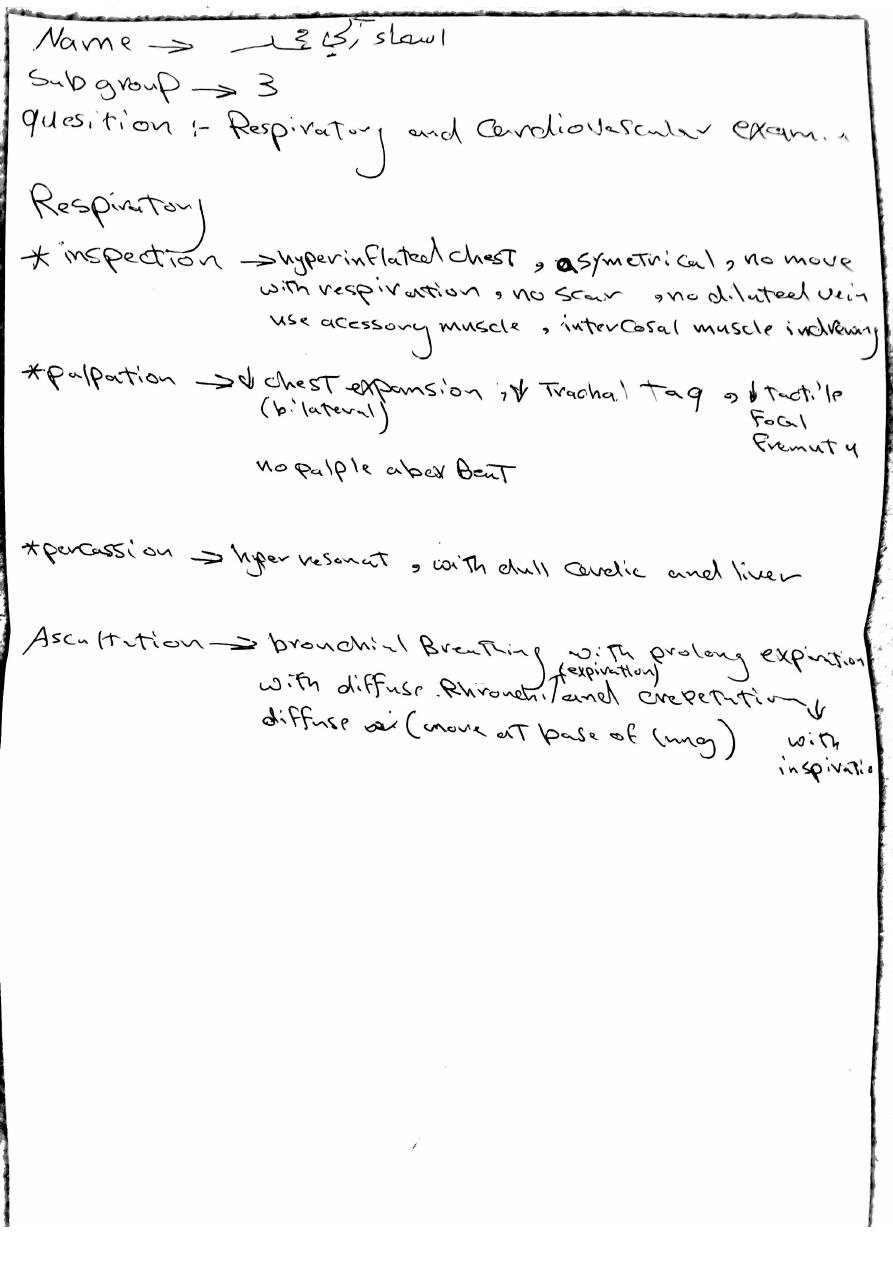 Name → اسماء زكي محمد
Subgroup → 3
quesition :- Respiratory and Cardiovascular exam..
Respiratory
* inspection → hyperinflated chest , asymetrical , no move
with respiration , no scar , no dilated vein
use acessory muscle , intercosal muscle indrewing
* palpation → ↓ chest expansion , ↓ Trachal Taq , ↓ tactile
(bilateral) Focal
Fremuty
no palple abex Beat
* percassion → hyper resonat , with dull cardic and liver
Ascultution → bronchial Breathing with prolong expiration
(expiration)
with diffuse Rhronchi and crepetution ↓
diffuse (more at base of lung) with
inspiratio